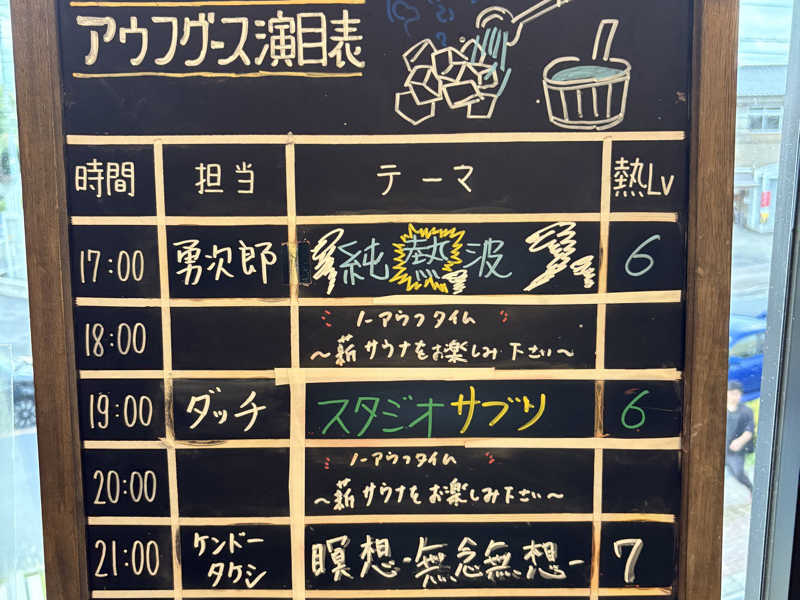 アウフグース演目表
時間 担当 テーマ 熱Lv
17:00 勇次郎 純熱波 6
18:00 ノーアウフタイム
～薪サウナをお楽しみ下さい～
19:00 ダッチ スタジオサブリ 6
20:00 ノーアウフタイム
～薪サウナをお楽しみ下さい～
21:00 ケンドー
タケシ 瞑想-無念無想- 7